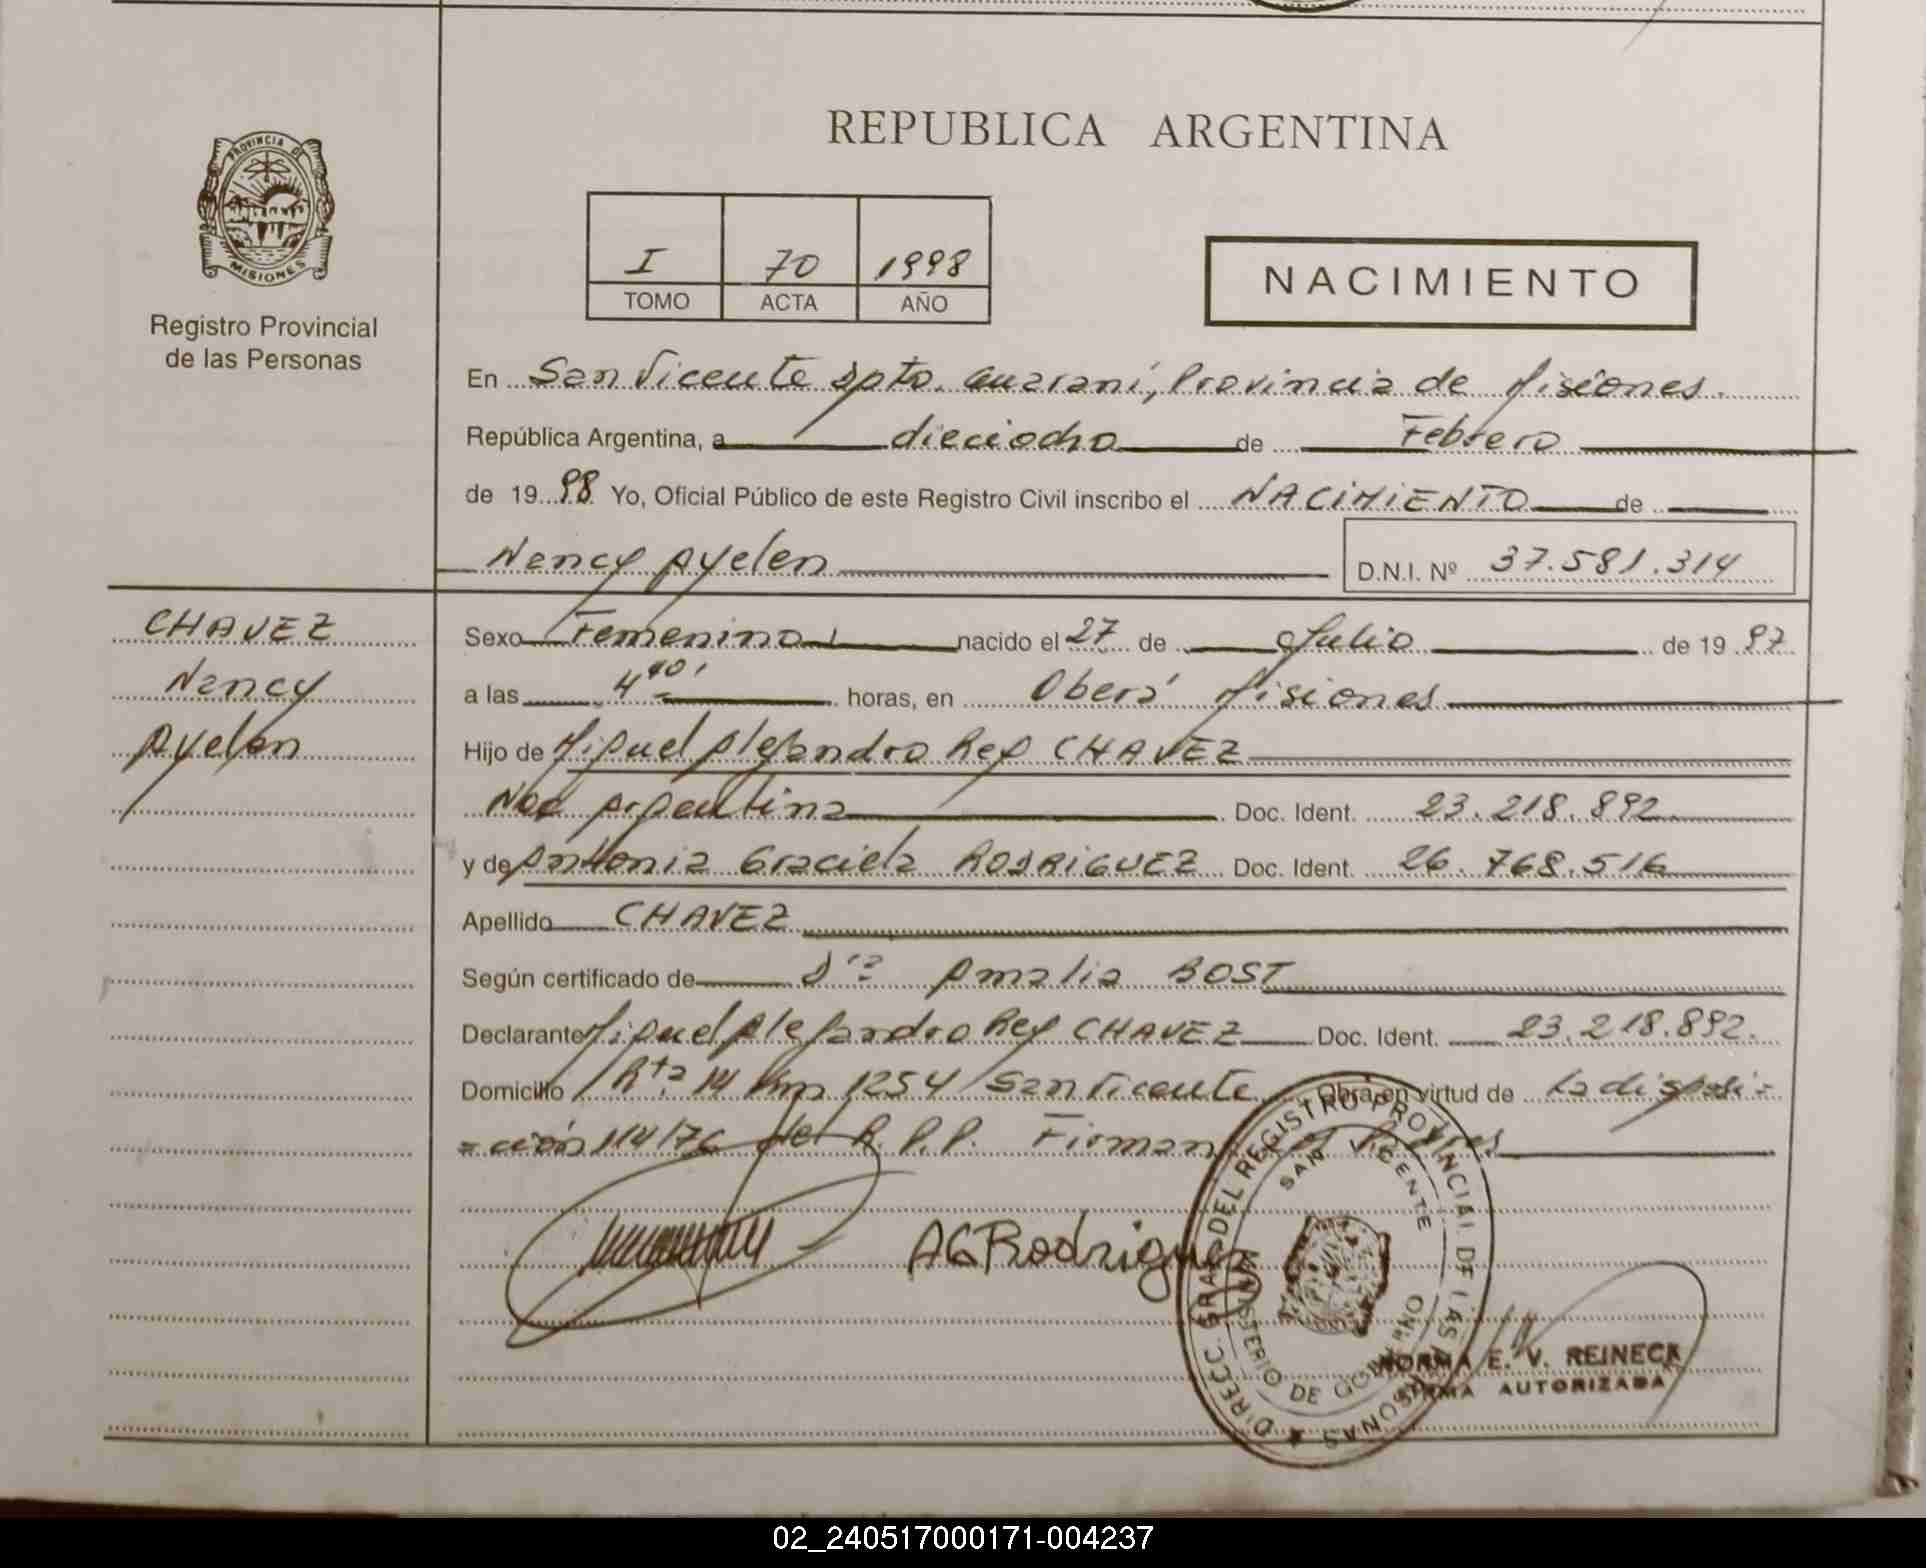 REPUBLICA ARGENTINA
PROVINCIA DE
MISIONES
Registro Provincial
de las Personas
I 70 1998
TOMO ACTA AÑO
NACIMIENTO
En San Vicente Dpto. Guaraní, Provincia de Misiones.
República Argentina, a dieciocho de Febrero
de 1998 Yo, Oficial Público de este Registro Civil inscribo el NACIMIENTO de
Nancy Ayelen D.N.I. Nº 37.581.314
CHAVEZ
Nancy
Ayelen
Sexo Femenino nacido el 27 de Julio de 1997
a las 4 40' horas, en Oberá Misiones
Hijo de Miguel Alejandro Rey CHAVEZ
Nac Argentina Doc. Ident. 23.218.892
y de Antonia Graciela RODRIGUEZ Doc. Ident. 26.768.516
Apellido CHAVEZ
Según certificado de Dra Amalia BOST
Declarante Miguel Alejandro Rey CHAVEZ Doc. Ident. 23.218.892.
Domicilio Rta 14 Km 1254 San Vicente Obra en virtud de La disposi=
=ción 114/76 del R.P.P. Firman los Padres
AGRodriguez
DIRECC. GRAL. DEL REGISTRO PROVINCIAL DE LAS PERSONAS
SAN VICENTE
MINISTERIO DE GOBIERNO
NORMA E. V. REINECK
FIRMA AUTORIZADA
02_240517000171-004237